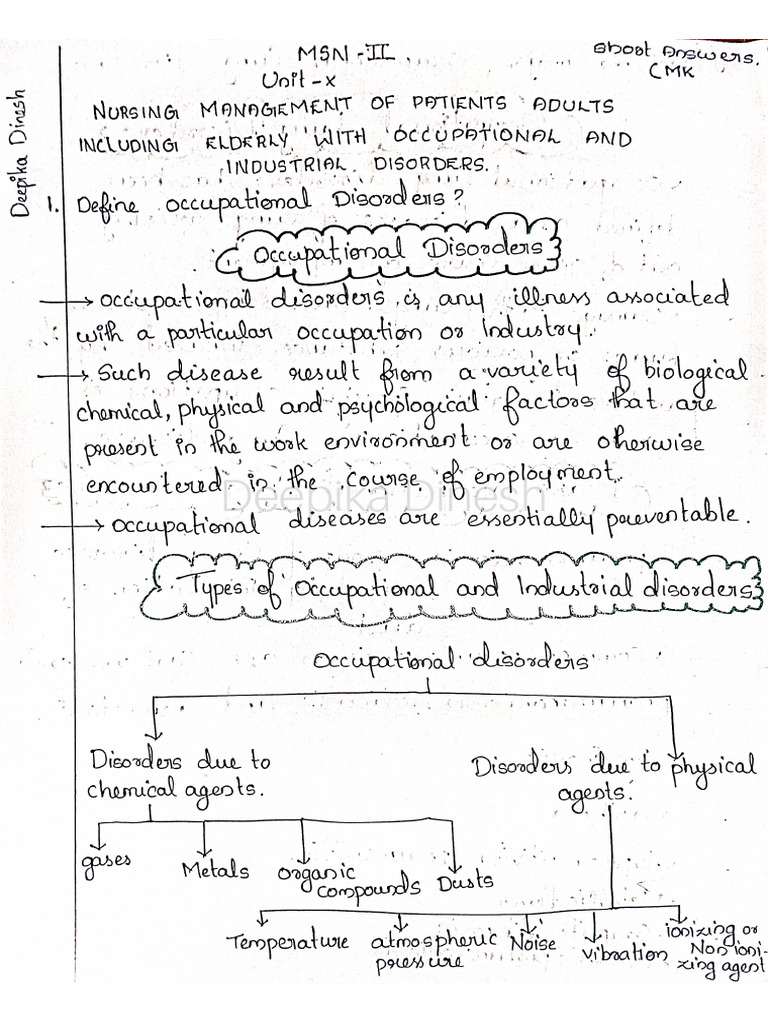 MSN-II
Short Answers.
CMK
Unit-X
NURSING MANAGEMENT OF PATIENTS ADULTS
INCLUDING ELDERLY WITH OCCUPATIONAL AND
INDUSTRIAL DISORDERS.
Deepika Dinesh
1. Define occupational Disorders?
Occupational Disorders
→ occupational disorders is any illness associated
with a particular occupation or industry.
→ Such disease result from a variety of biological
chemical, physical and psychological factors that are
present in the work environment or are otherwise
encountered in the course of employment.
Deepika Dinesh
→ occupational diseases are essentially preventable.
Types of Occupational and Industrial disorders
Occupational disorders
Disorders due to
chemical agents.
Disorders due to physical
agents.
gases
Metals
organic
compounds
Dusts
Temperature
atmospheric
pressure
Noise
vibration
ionizing or
Non ioni-
zing agent